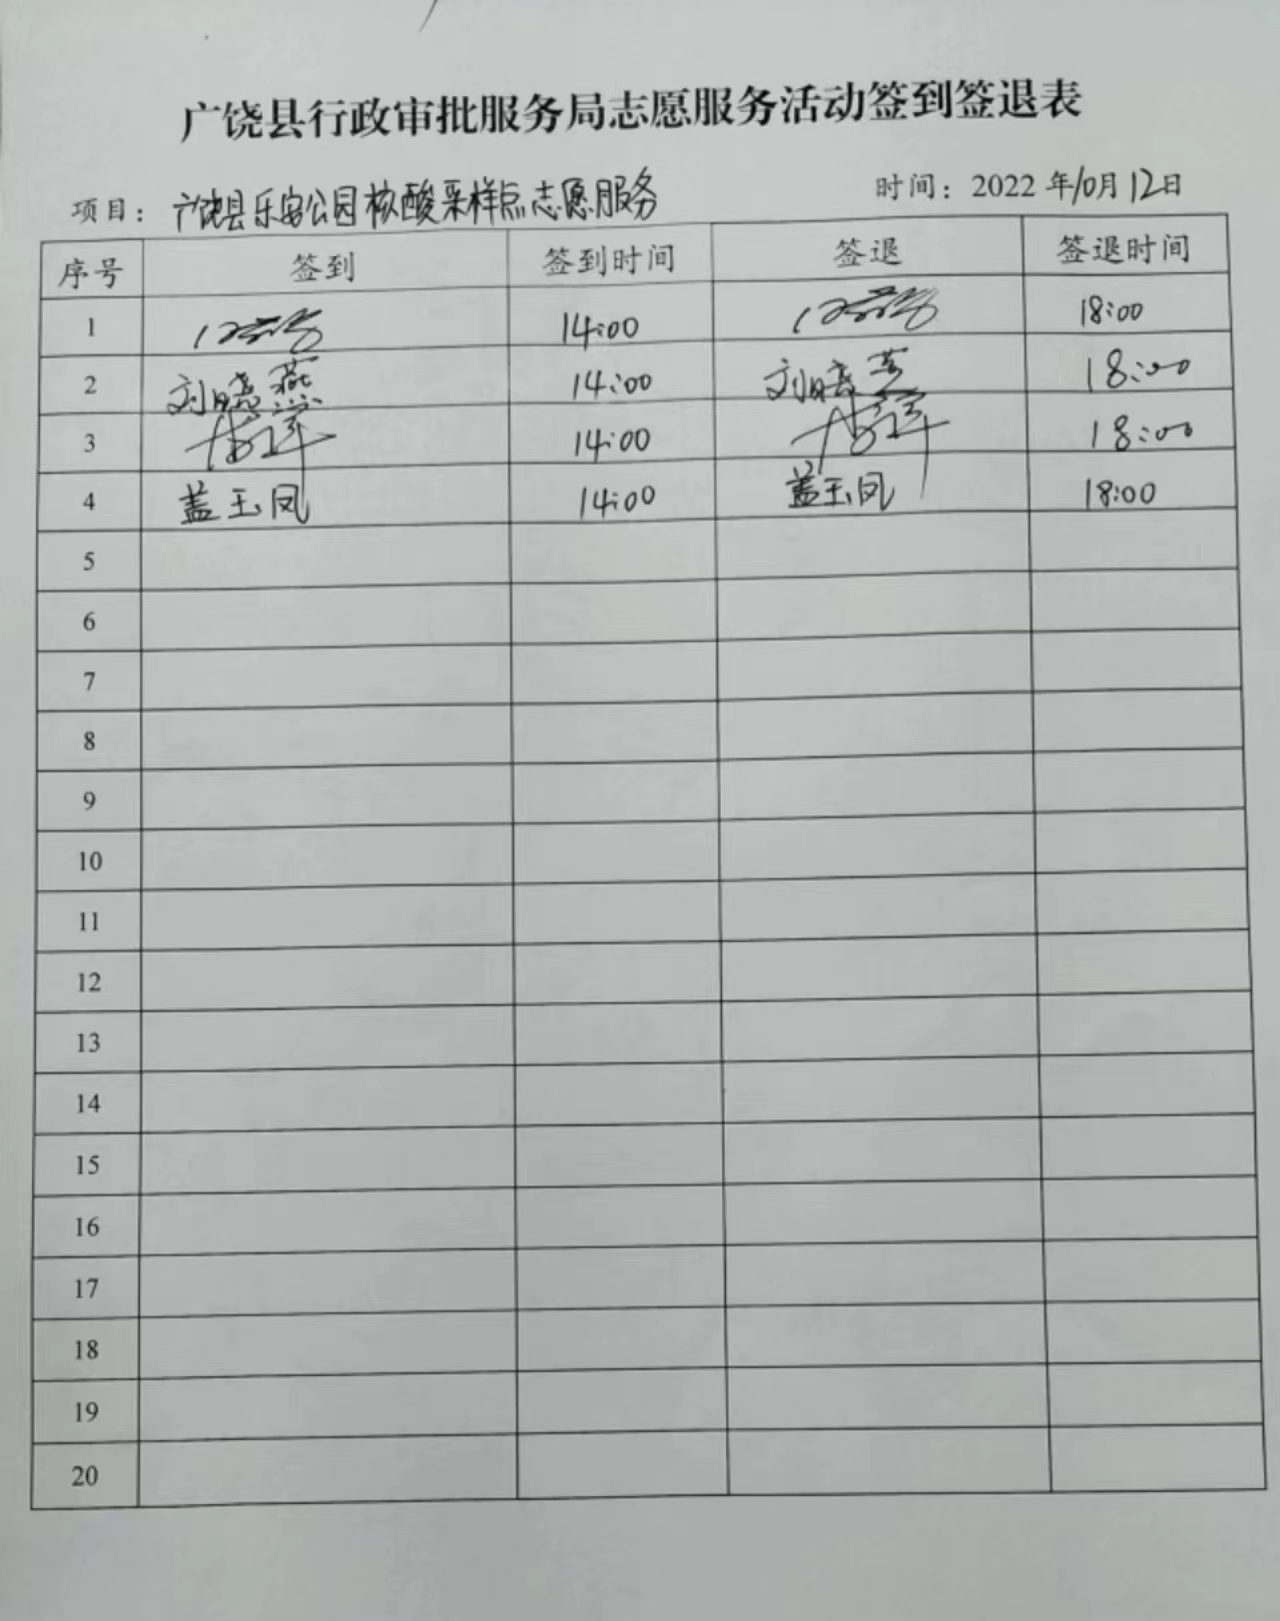 广饶县行政审批服务局志愿服务活动签到签退表
项目：广饶县乐安公园核酸采样点志愿服务 时间：2022年10月12日
序号 签到 签到时间 签退 签退时间
1 14:00 18:00
2 刘晓燕 14:00 刘晓燕 18:00
3 14:00 18:00
4 盖玉凤 14:00 盖玉凤 18:00
5
6
7
8
9
10
11
12
13
14
15
16
17
18
19
20